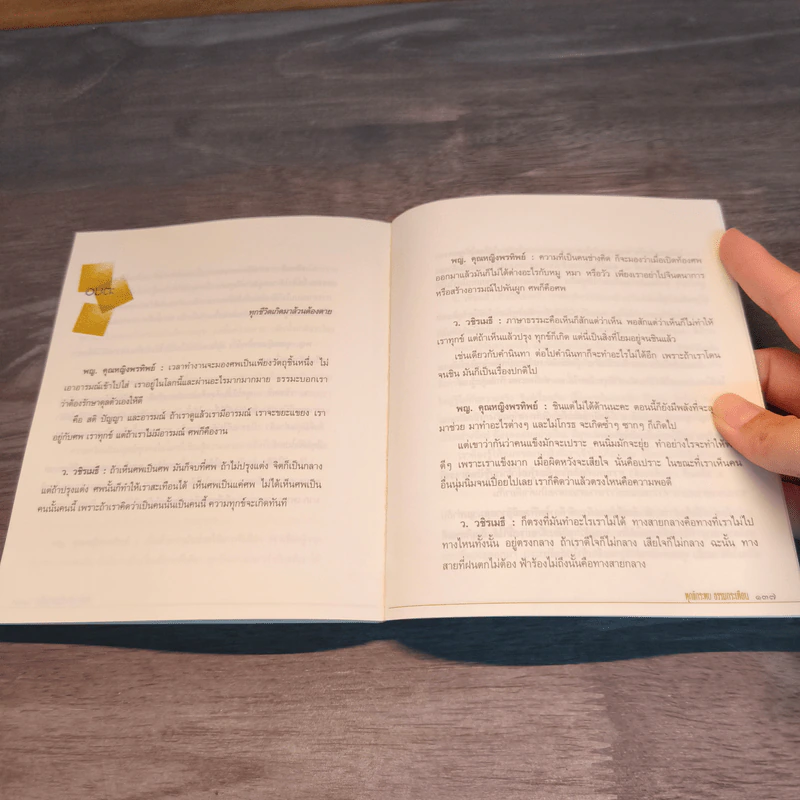 ทุกชีวิตเกิดมาล้วนต้องตาย
พญ. คุณหญิงพรทิพย์ : เวลาทำงานจะมองศพเป็นเพียงวัตถุชิ้นหนึ่ง ไม่
เอาอารมณ์เข้าไปใส่ เราอยู่ในโลกนี้และผ่านอะไรมามากมาย ธรรมะบอกเรา
ว่าต้องรักษาดุลตัวเองให้ดี
คือ สติ ปัญญา และอารมณ์ ถ้าเราดูแล้วเรามีอารมณ์ เราจะขยะแขยง เรา
อยู่กับศพ เราทุกข์ แต่ถ้าเราไม่มีอารมณ์ ศพก็คืองาน
ว. วชิรเมธี : ถ้าเห็นศพเป็นศพ มันก็จบที่ศพ ถ้าไม่ปรุงแต่ง จิตก็เป็นกลาง
แต่ถ้าปรุงแต่ง ศพนั้นก็ทำให้เราสะเทือนได้ เห็นศพเป็นแค่ศพ ไม่ได้เห็นศพเป็น
คนนั้นคนนี้ เพราะถ้าเราคิดว่าเป็นคนนั้นเป็นคนนี้ ความทุกข์จะเกิดทันที
พญ. คุณหญิงพรทิพย์ : ความที่เป็นคนช่างคิด ก็จะมองว่าเมื่อเปิดท้องศพ
ออกมาแล้วมันก็ไม่ได้ต่างอะไรกับหมู หมา หรือวัว เพียงเราอย่าไปจินตนาการ
หรือสร้างอารมณ์ไปพันผูก ศพก็คือศพ
ว. วชิรเมธี : ภาษาธรรมะคือเห็นก็สักแต่ว่าเห็น พอสักแต่ว่าเห็นก็ไม่ทำให้
เราทุกข์ แต่ถ้าเห็นแล้วปรุง ทุกข์ก็เกิด แต่นี่เป็นสิ่งที่โยมอยู่จนชินแล้ว
เช่นเดียวกับคำนินทา ต่อไปคำนินทาก็จะทำอะไรไม่ได้อีก เพราะถ้าเราโดน
จนชิน มันก็เป็นเรื่องปกติไป
พญ. คุณหญิงพรทิพย์ : ชินแต่ไม่ได้ด้านนะคะ ตอนนี้ก็ยังมีพลังที่จะ
มาช่วย มาทำอะไรต่างๆ และไม่โกรธ จะเกิดซ้ำๆ ซากๆ ก็เกิดไป
แต่เขาว่ากันว่าคนแข็งมักจะเปราะ คนนิ่มมักจะยุ่ย ทำอย่างไรจะทำให้
ดีๆ เพราะเราแข็งมาก เมื่อผิดหวังจะเสียใจ นั่นคือเปราะ ในขณะที่เราเห็นคน
อื่นนุ่มนิ่มจนเปื่อยไปเลย เราก็คิดว่าแล้วตรงไหนคือความพอดี
ว. วชิรเมธี : ก็ตรงที่มันทำอะไรเราไม่ได้ ทางสายกลางคือทางที่เราไม่ไป
ทางไหนทั้งนั้น อยู่ตรงกลาง ถ้าเราดีใจก็ไม่กลาง เสียใจก็ไม่กลาง ฉะนั้น ทาง
สายที่ฝนตกไม่ต้อง ฟ้าร้องไม่ถึงนั้นคือทางสายกลาง
ทุกข์กระทบ ธรรมกระเทือน ๑๓๗